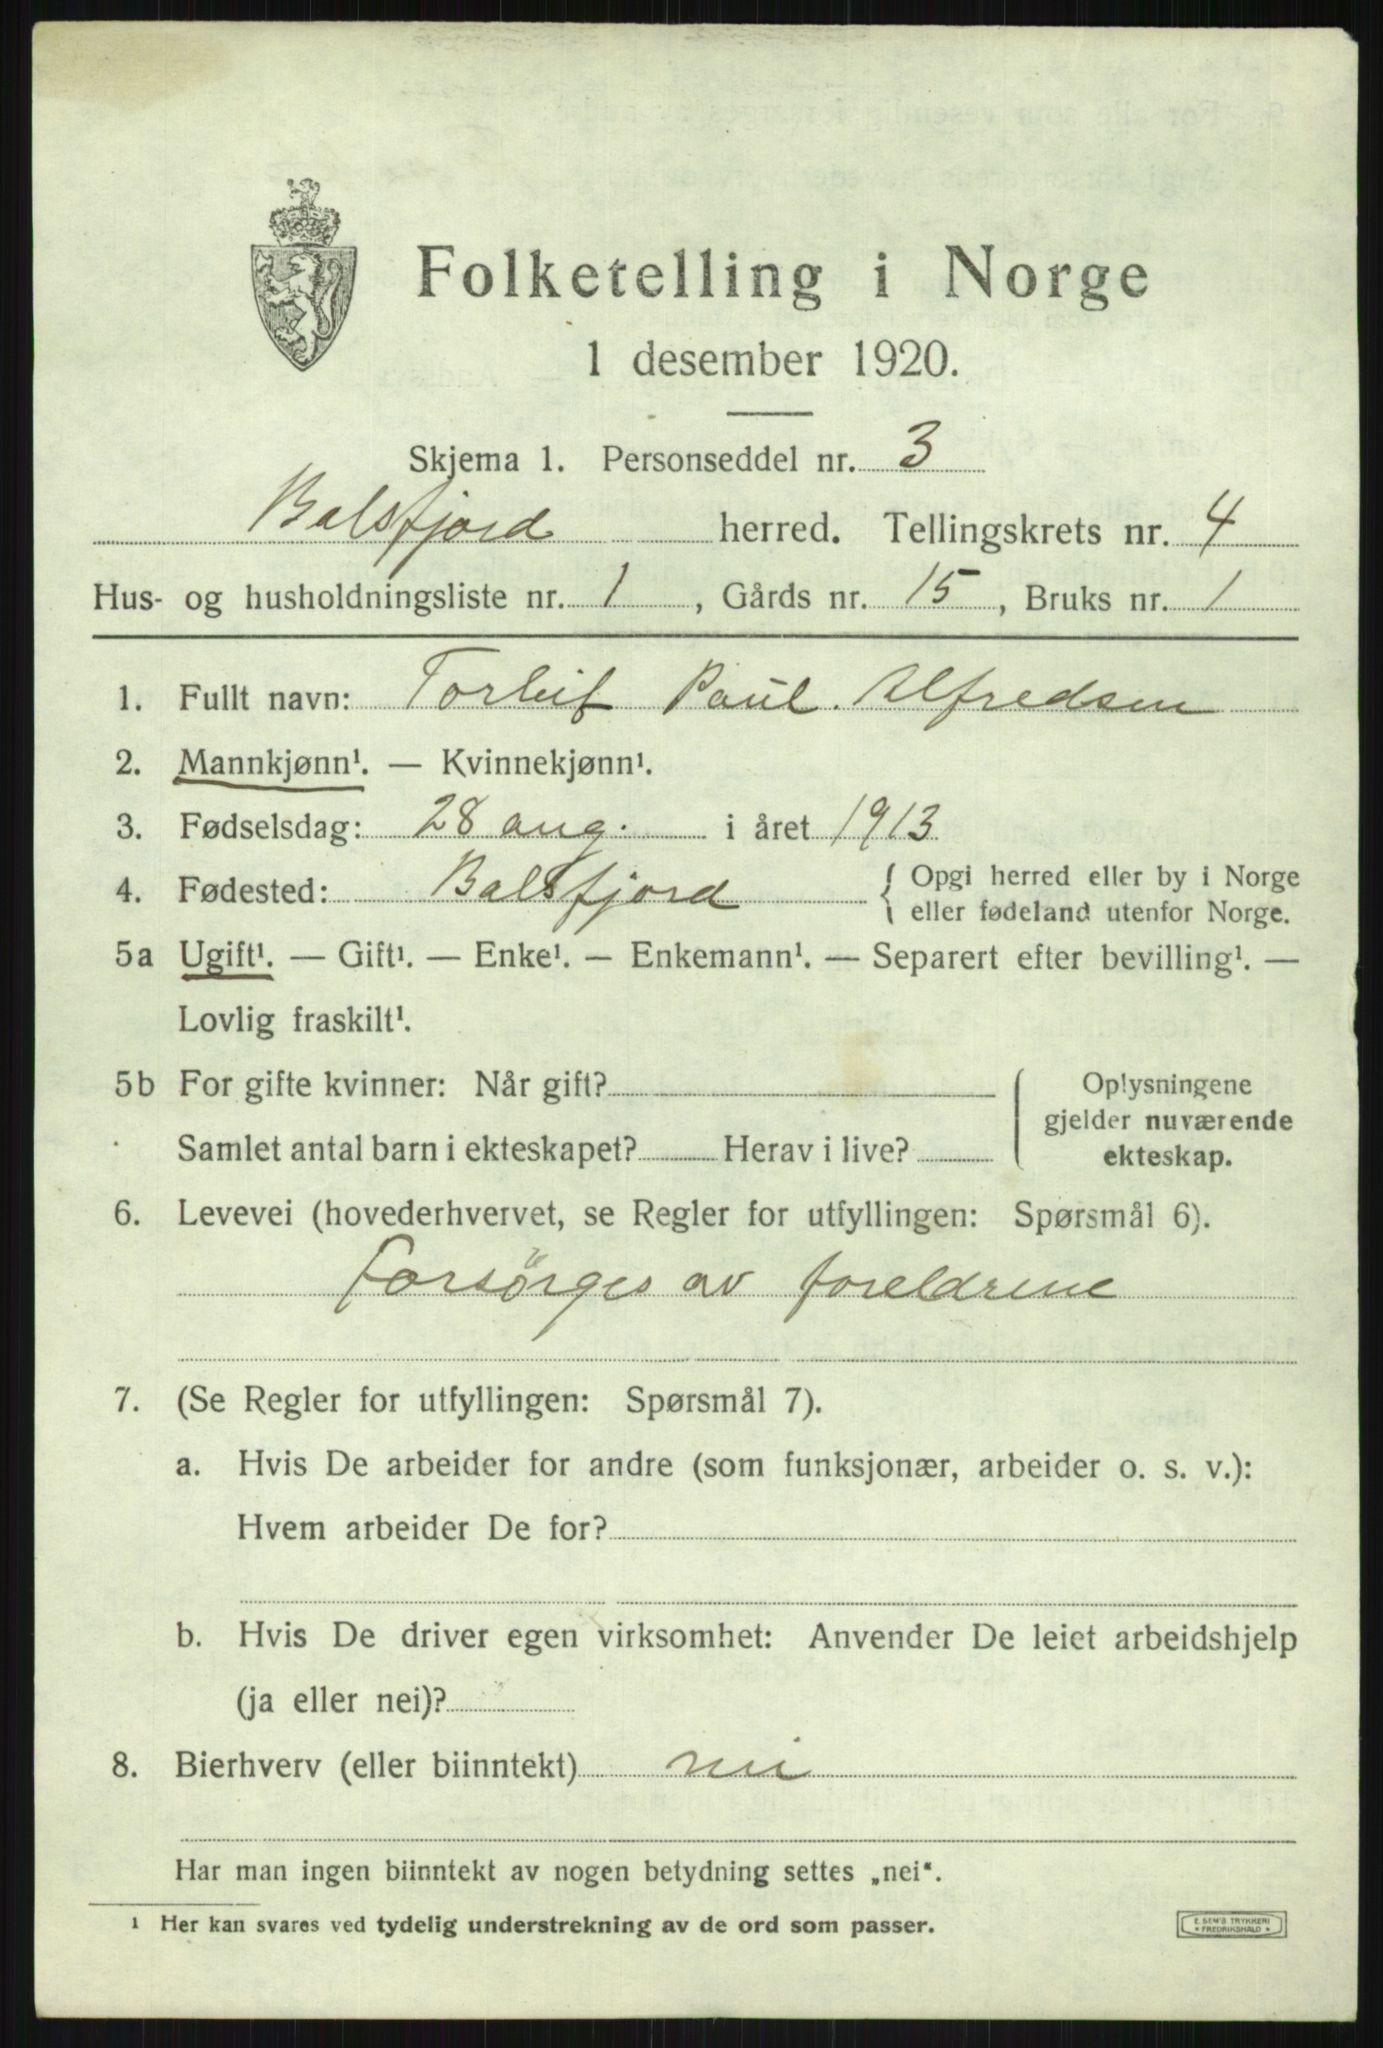 Folketelling i Norge
1 desember 1920.
Skjema 1. Personseddel nr. 3
Balsfjord herred. Tellingskrets nr. 4
Hus- og husholdningsliste nr. 1, Gårds nr. 15, Bruks nr. 1
1. Fullt navn: Torleif Paul Alfredsen
2. Mannkjønn¹. — Kvinnekjønn¹.
3. Fødselsdag: 28 aug. i året 1913
4. Fødested: Balsfjord { Opgi herred eller by i Norge
eller fødeland utenfor Norge.
5a Ugift¹. — Gift¹. — Enke¹. — Enkemann¹. — Separert efter bevilling¹. —
Lovlig fraskilt¹.
5b For gifte kvinner: Når gift? Oplysningene
gjelder nuværende
Samlet antal barn i ekteskapet? Herav i live? ekteskap.
6. Levevei (hovederhvervet, se Regler for utfyllingen: Spørsmål 6).
Forsørges av foreldrene
7. (Se Regler for utfyllingen: Spørsmål 7).
a. Hvis De arbeider for andre (som funksjonær, arbeider o. s. v.):
Hvem arbeider De for?
b. Hvis De driver egen virksomhet: Anvender De leiet arbeidshjelp
(ja eller nei)?
8. Bierhverv (eller biinntekt) nei
Har man ingen biinntekt av nogen betydning settes „nei“.
¹ Her kan svares ved tydelig understrekning av de ord som passer.
E. SEM'S TRYKKERI
FREDRIKSHALD